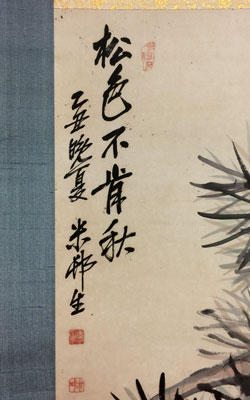 松色不肯秋
乙丑晩夏 米邨生